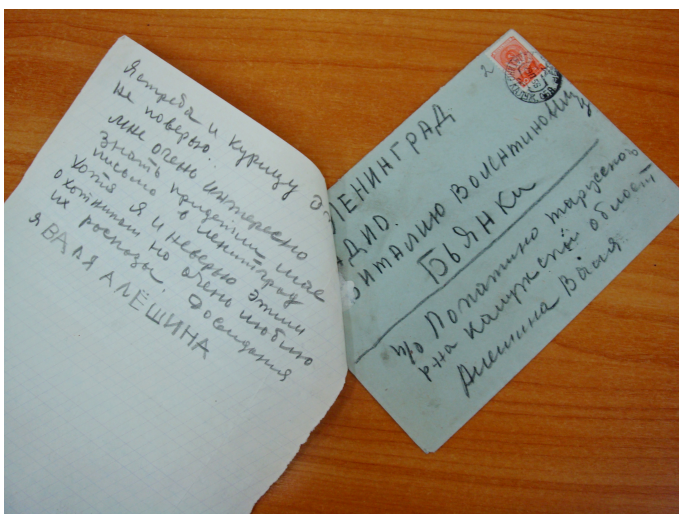 Ястреба и курицу
не поверю.
мне очень интересно
знать придетли мае
письмо в ленинград
хотя я и неверю этим
охотникам но очень люблю
их росказы Досвидания
я ВАЛЯ АЛЁШИНА
2
ЛЕНИНГРАД
АДИО
ВИТАЛИЮ ВОЛЕНТИНОВИЧ
У
БЬЯНКИ
п/о Лопатино тарусского
р-на Калужской област
Алешина Валя